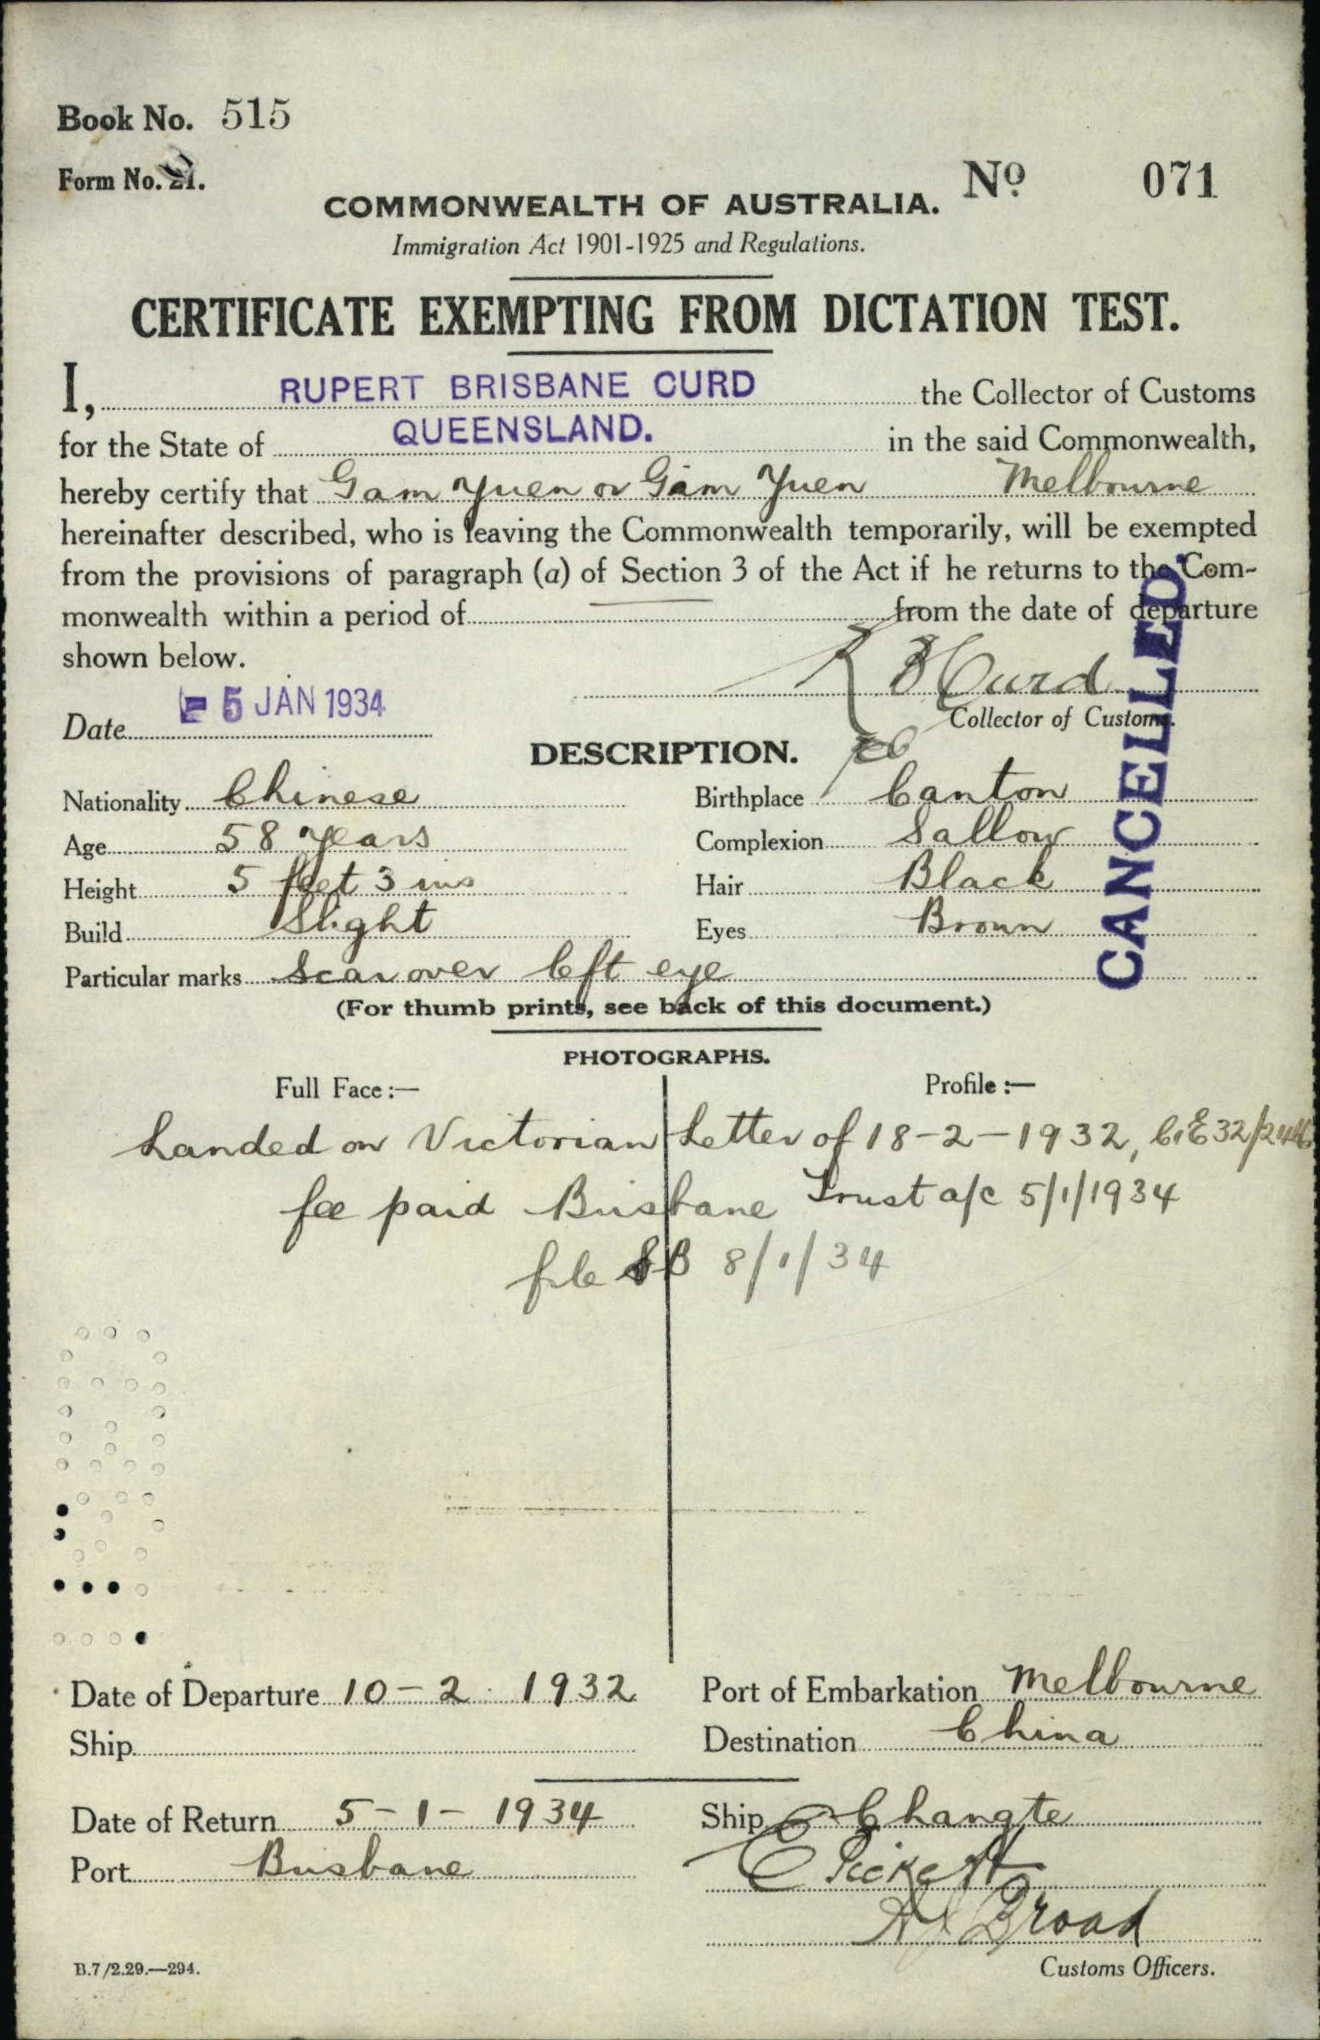 Book No. 515
Form No. 21.
No 071
COMMONWEALTH OF AUSTRALIA.
Immigration Act 1901-1925 and Regulations.
CERTIFICATE EXEMPTING FROM DICTATION TEST.
I, RUPERT BRISBANE CURD the Collector of Customs
for the State of QUEENSLAND. in the said Commonwealth,
hereby certify that Gam Yuen or Gam Yuen Melbourne
hereinafter described, who is leaving the Commonwealth temporarily, will be exempted
from the provisions of paragraph (a) of Section 3 of the Act if he returns to the Com-
monwealth within a period of from the date of departure
shown below.
R B Curd
Date 5 JAN 1934
Collector of Customs.
CANCELLED.
DESCRIPTION.
Nationality Chinese Birthplace Canton
Age 58 years Complexion Sallow
Height 5 feet 3 ins Hair Black
Build Slight Eyes Brown
Particular marks Scar over left eye
(For thumb prints, see back of this document.)
PHOTOGRAPHS.
Full Face:— Profile:—
Landed on Victorian Letter of 18-2-1932, C.E 32/
fee paid Brisbane Trust a/c 5/1/1934
file 8/1/34
Date of Departure 10-2-1932 Port of Embarkation Melbourne
Ship Destination China
Date of Return 5-1-1934 Ship Changte
Port Brisbane E Pickett
Broad
B.7/2.29.—294.
Customs Officers.